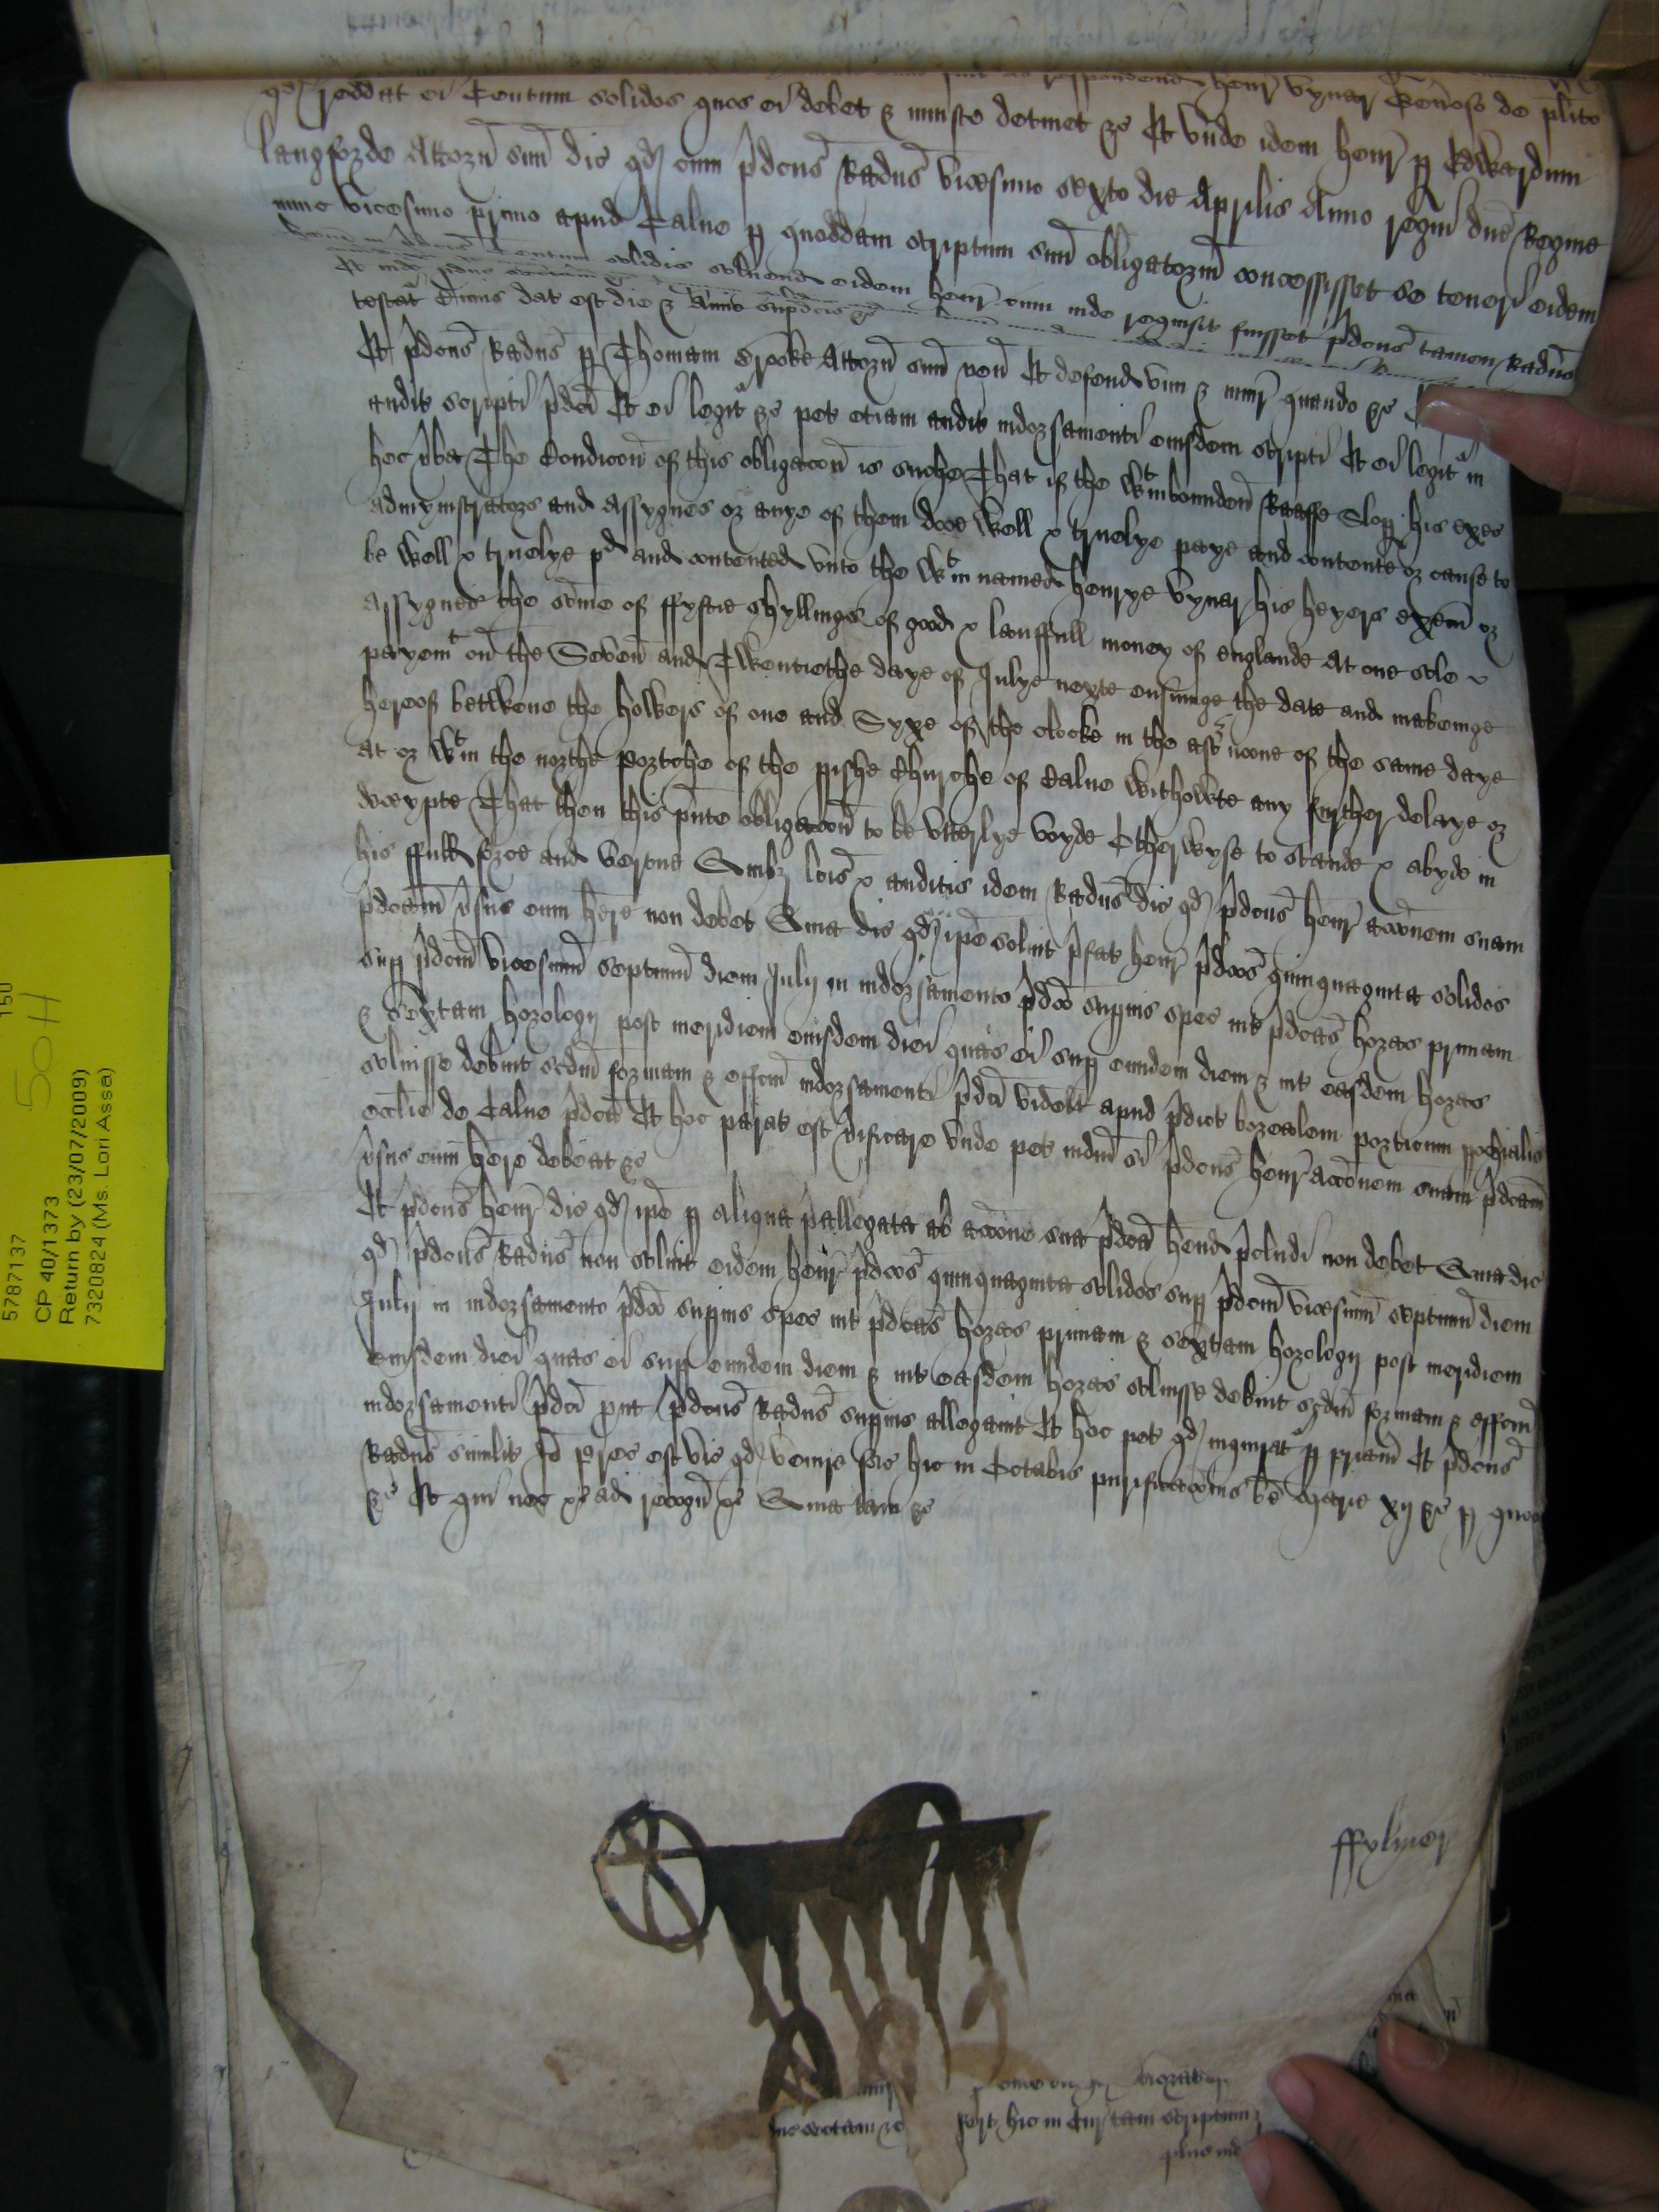 respondend henr Vynar Generoso de plito
qd reddat ei Centum solidos quos ei debet & iniuste detinet &c Et unde idem henr p Edwardum
langforde Attorn suu dic qd cum pdcus Radus vicesimo sexto die Aprilis Anno regni dne Regine
nunc vicesimo primo apud Calne p quoddam scriptum suu obligatoriu concessisset se teneri eidem
henr in pdcis Centum solidis solvend eidem henr cum inde requisit fuisset pdcus tamen Radus
testat Cuius dat est die & Anno supdcis &c
Et pdcus Radus p Thomam Brooke Attorn suu ven Et defend vim & iniur quando &c
audit scripti pdci Et ei legit &c pet etiam audit indorsamenti eiusdem scripti Et ei legit in
hec vba The Condicon of this obligacon is suche That if the wtinbounden Raaffe Slop his exes
admynistrators and Assygnes or anye of them doe well & truelye paye and contente or cause to
be well & truelye pd and contented unto the wtin named henrye Vynar his heyers exem or
Assygnes the some of ffyftie shyllinges of good & lauffull money of englande At one sole &
payemt on the Seven and Twentiethe daye of Julye nexte ensuinge the date and makeinge
hereof bettwene the howers of one and Syxe of the clocke in the aft noone of the same daye
At or wtin the northe Portche of the pishe Churche of Calne withowte any further delaye or
deceypte That then this pnte obligacon to be utterlye voyde Otherwyse to stande & abyde in
his ffull force and vertue Quibz lcis & auditis idem Radus dic qd pdcus henr accionem suam
pdcam vsus eum here non debet Quia dic qd ipe solvit pfat henr pdcos quinquaginta solidos
sup pdcm vicesimu septimu diem Julij in indorsamento pdco supius spec int pdcas horas primam
& sextam horologij post meridiem eiusdem diei quas ei sup eundem diem & int easdem horas
solvisse debuit scdm formam & effcm indorsamenti pdci videlt apud pdict borealem porticum pochialis
ecclie de Calne pdca Et hoc parat est vificare unde pet iudm si pdcus henr accionem suam pdcam
vsus eum here debeat &c
Et pdcus henr dic qd ipe p aliqua pallegata ab accione sua pdca hend pcludi non debet Quia dic
qd pdcus Radus non solvit eidem henr pdcos quinquaginta solidos sup pdcm vicesimu septimu diem
Julij in indorsamento pdco supius spec int pdcas horas primam & sextam horologij post meridiem
eiusdem diei quas ei sup eundem diem & int easdem horas solvisse debuit scdm formam & effcm
indorsamenti pdci put pdcus Radus supius allegavit Et hoc pet qd inquirat p priam Et pdcus
Radus similit Io prec est vic qd venire fac hic in Octabis purificacionis be Marie xij &c p quos
&c Et qui nec &c ad recogn &c Quia tam &c
ffylmer
hic in Cur tam scriptum
5787137
50 H
150
CP 40/1373
Return by (23/07/2009)
7320824 (Ms. Lori Assa)